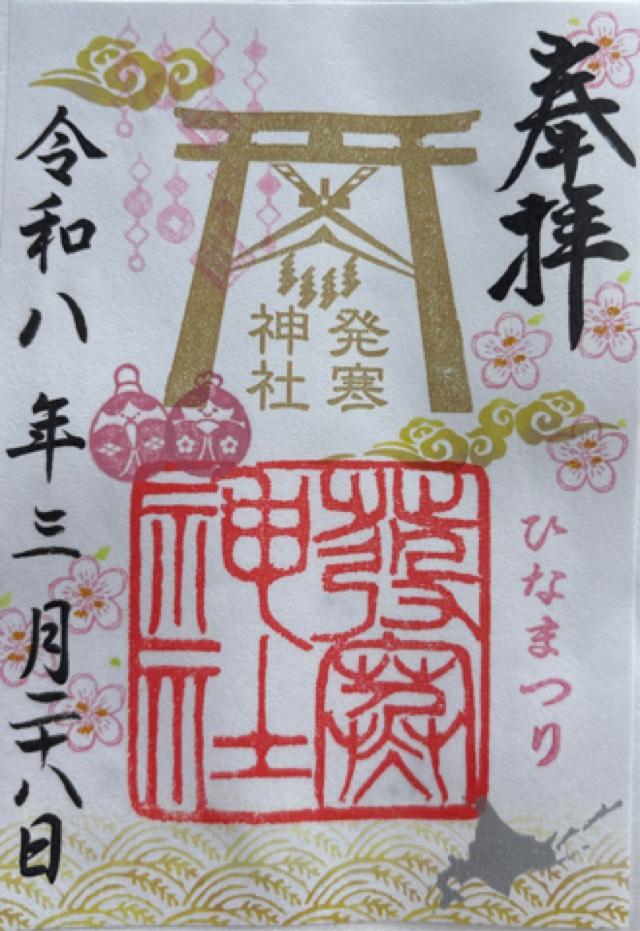 奉拝
発寒
神社
發寒
神社
ひなまつり
令和八年三月二十八日